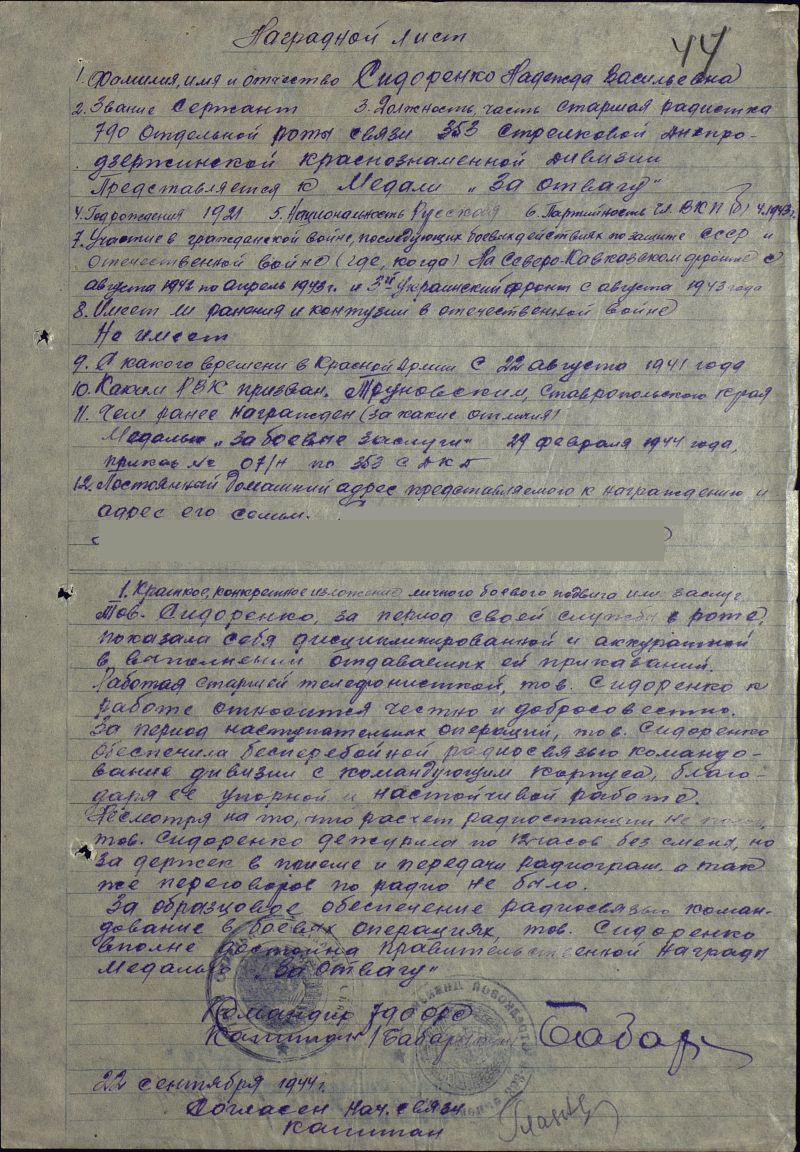 44
Наградной лист
1. Фамилия, имя и отчество Сидоренко Надежда Васильевна
2. Звание Сержант 3. Должность, часть старшая радистка
790 отдельной роты связи 353 стрелковой Днепро-
дзержинской краснознаменной дивизии
Представляется к Медали „За отвагу"
4. Год рождения 1921 5. Национальность Русская 6. Партийность чл. ВКП(б) с 1943г.
7. Участие в гражданской войне, последующих боевых действиях по защите СССР и
отечественной войне (где, когда) На Северо-Кавказском фронте с
августа 1942 по апрель 1943г. и 3й Украинский фронт с августа 1943 года
8. Имеет ли ранения и контузии в отечественной войне
Не имеет
9. С какого времени в Красной Армии С 22 августа 1941 года
10. Каким РВК призван. Труновским, Ставропольского края
11. Чем ранее награжден (за какие отличия)
Медалью „За боевые заслуги" 29 февраля 1944 года,
приказ № 07/н по 353 СДКД
12. Постоянный домашний адрес представляемого к награждению и
адрес его семьи.
1. Краткое, конкретное изложение личного боевого подвига или заслуг
Тов. Сидоренко, за период своей службы в роте,
показала себя дисциплинированной и аккуратной
в выполнении отдаваемых ей приказаний.
Работая старшей телефонисткой, тов. Сидоренко к
работе относится честно и добросовестно.
За период наступательных операций, тов. Сидоренко
обеспечила бесперебойной радиосвязью командо-
вание дивизии с командующим корпуса, благо-
даря её упорной и настойчивой работе.
Несмотря на то, что расчет радиостанции не полон,
тов. Сидоренко дежурила по 12 часов без смены, но
за держек в приеме и передачи радиограм, а так
же переговоров по радио не было.
За образцовое обеспечение радиосвязью коман-
дование в боевых операциях, тов. Сидоренко
вполне достойна Правительственной Награды
Медалью „За отвагу"
Командир 790 орс
Капитан
22 сентября 1944г.
Согласен Нач. связи
капитан